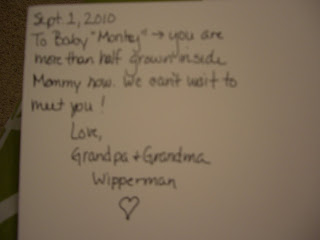 Sept. 1, 2010
To Baby "Monkey" → you are
more than half grown inside
Mommy now. We can't wait to
meet you!
Love,
Grandpa + Grandma
Wipperman
♡